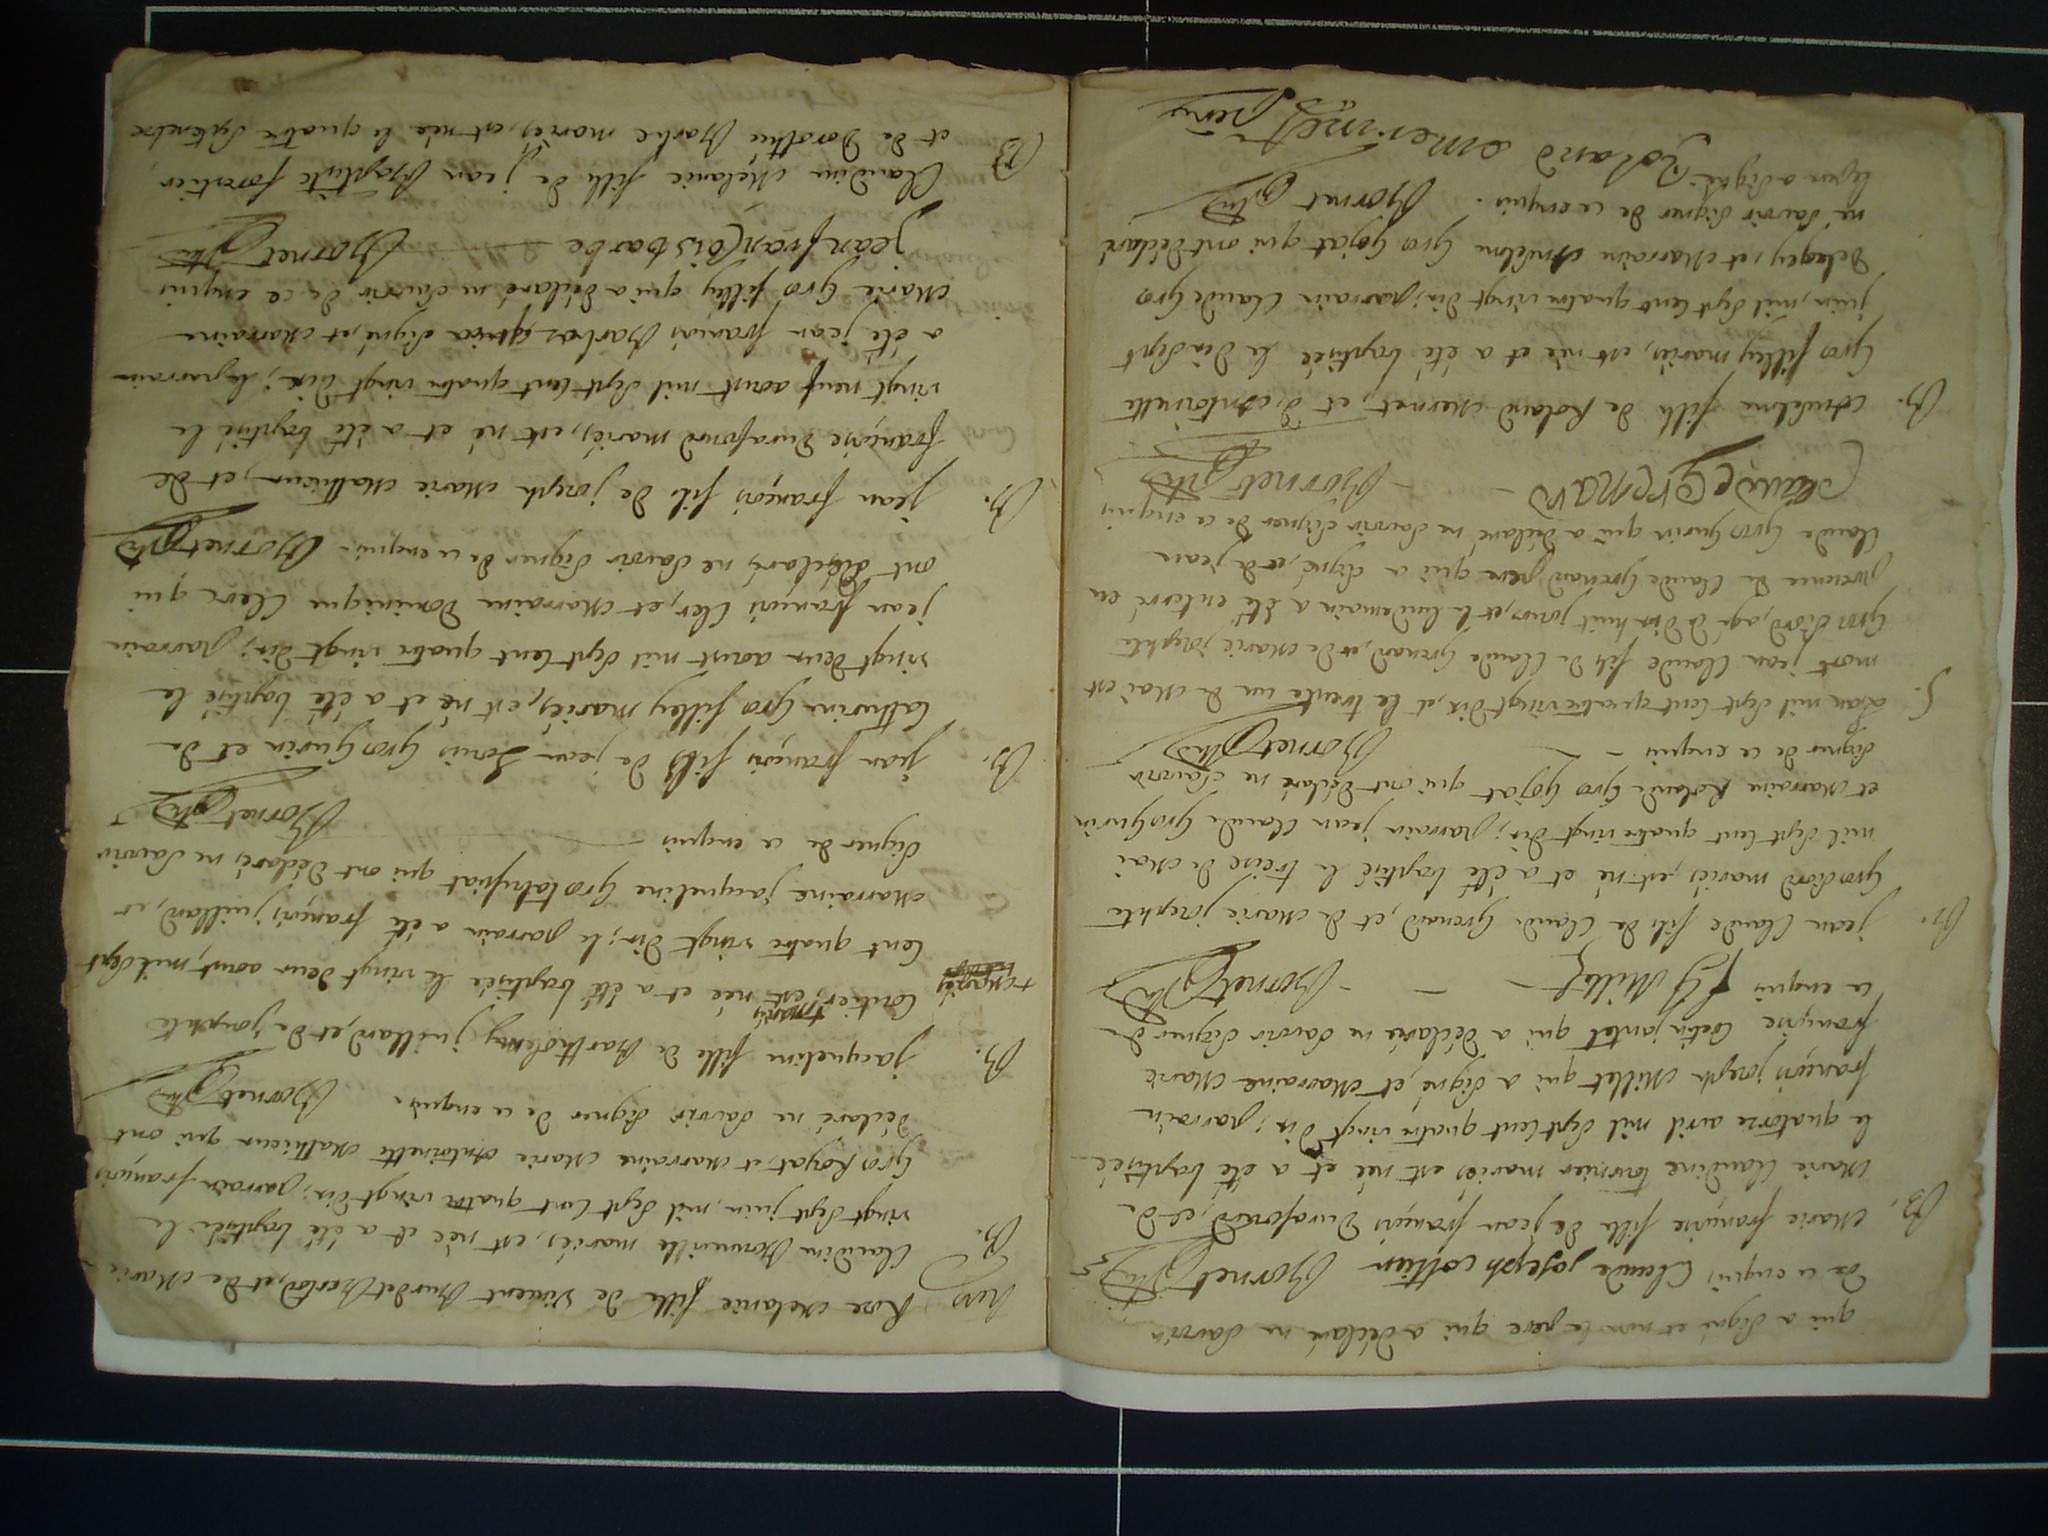 qui a signé et non la père qui a déclaré ne savoir
de ce enquis Claude joseph cottier Bornet Ptre
B. Marie françoise fille de jean françois Duraford, et de
Marie Claudine tournier mariés est née et a été baptisée
le quatorze avril mil sept cent quatre vingt dix; parrain
françois joseph Millet qui a signé, et Marraine Marie
françoise jantet qui a déclaré ne savoir signer de
ce enquis f J Millet Bornet Ptre
B. jean Claude fils de Claude Grenard, et de Marie josephte
Grosdiod mariés, est né et a été baptisé le treize de Mai
mil sept cent quatre vingt dix; parrain jean Claude GrosGurin
et Marraine Rolande Gros Gojat qui ont déclaré ne savoir
signer de ce enquis - Bornet Ptre
S. L'an mil sept cent quatre vingt dix, et le trente un de Mai est
mort jean Claude fils de Claude Grenard, et de Marie josephte
Grosdiod, agé de dix huit jours, et le lendemain a été enterré en
présence de Claude Grenard père qui a signé, et de jean
Claude Gros Gurin qui a déclaré ne savoir signer de ce enquis
Claude Grenard - Bornet Ptre
B. Andeline fille de Roland Mermet, et d'Antoinette
Gros filley mariés, est née et a été baptisée le dix sept
juin, mil sept cent quatre vingt dix; parrain Claude Gros
Delagey, et Marraine Andeline Gros Gojat qui ont déclaré
ne savoir signer de ce enquis. Bornet Ptre
le pere a signé. Roland Mermet père
Rose Melanie fille de Vincent, et de Marie
B. Claudine Bonneville mariés, est née et a été baptisée le
vingt sept juin, mil sept cent quatre vingt dix; parrain françois
Gros Royat, et Marraine Marie Antoinette Mathieux qui ont
déclaré ne savoir signer de ce enquis. Bornet Ptre
B. jacqueline fille de Barthelemy juillard, et de josephte
Cottier, + mariés est née et a été baptisée le vingt deux aout, mil sept
+ mariés
cent quatre vingt dix; le parrain a été françois juillard, et
Marraine jacqueline Gros qui ont déclarés ne savoir
signer de ce enquis Bornet Ptre
B. jean françois fils de jean Louis Gros Gurin et de
Catherine Gros filley mariés, est né et a été baptisé le
vingt deux aoust mil sept cent quatre vingt dix; parrain
jean françois Clerc, et Marraine Dominique Clerc qui
ont déclarés ne savoir signer de ce enquis. Bornet Ptre
B. jean françois fils de joseph Marie Mathieux, et de
françoise Duraford mariés, est né et a été baptisé le
vingt neuf aoust mil sept cent quatre vingt dix; le parrain
a été jean françois Barbe qui a signé, et Marraine
Marie Gros filley qui a déclaré ne savoir de ce enquis
jean francois barbe Bornet Ptre
B Claudine Mélanie fille de jean Baptiste forestier,
et de Dorothée Barbe mariés, est née le quatre septembre